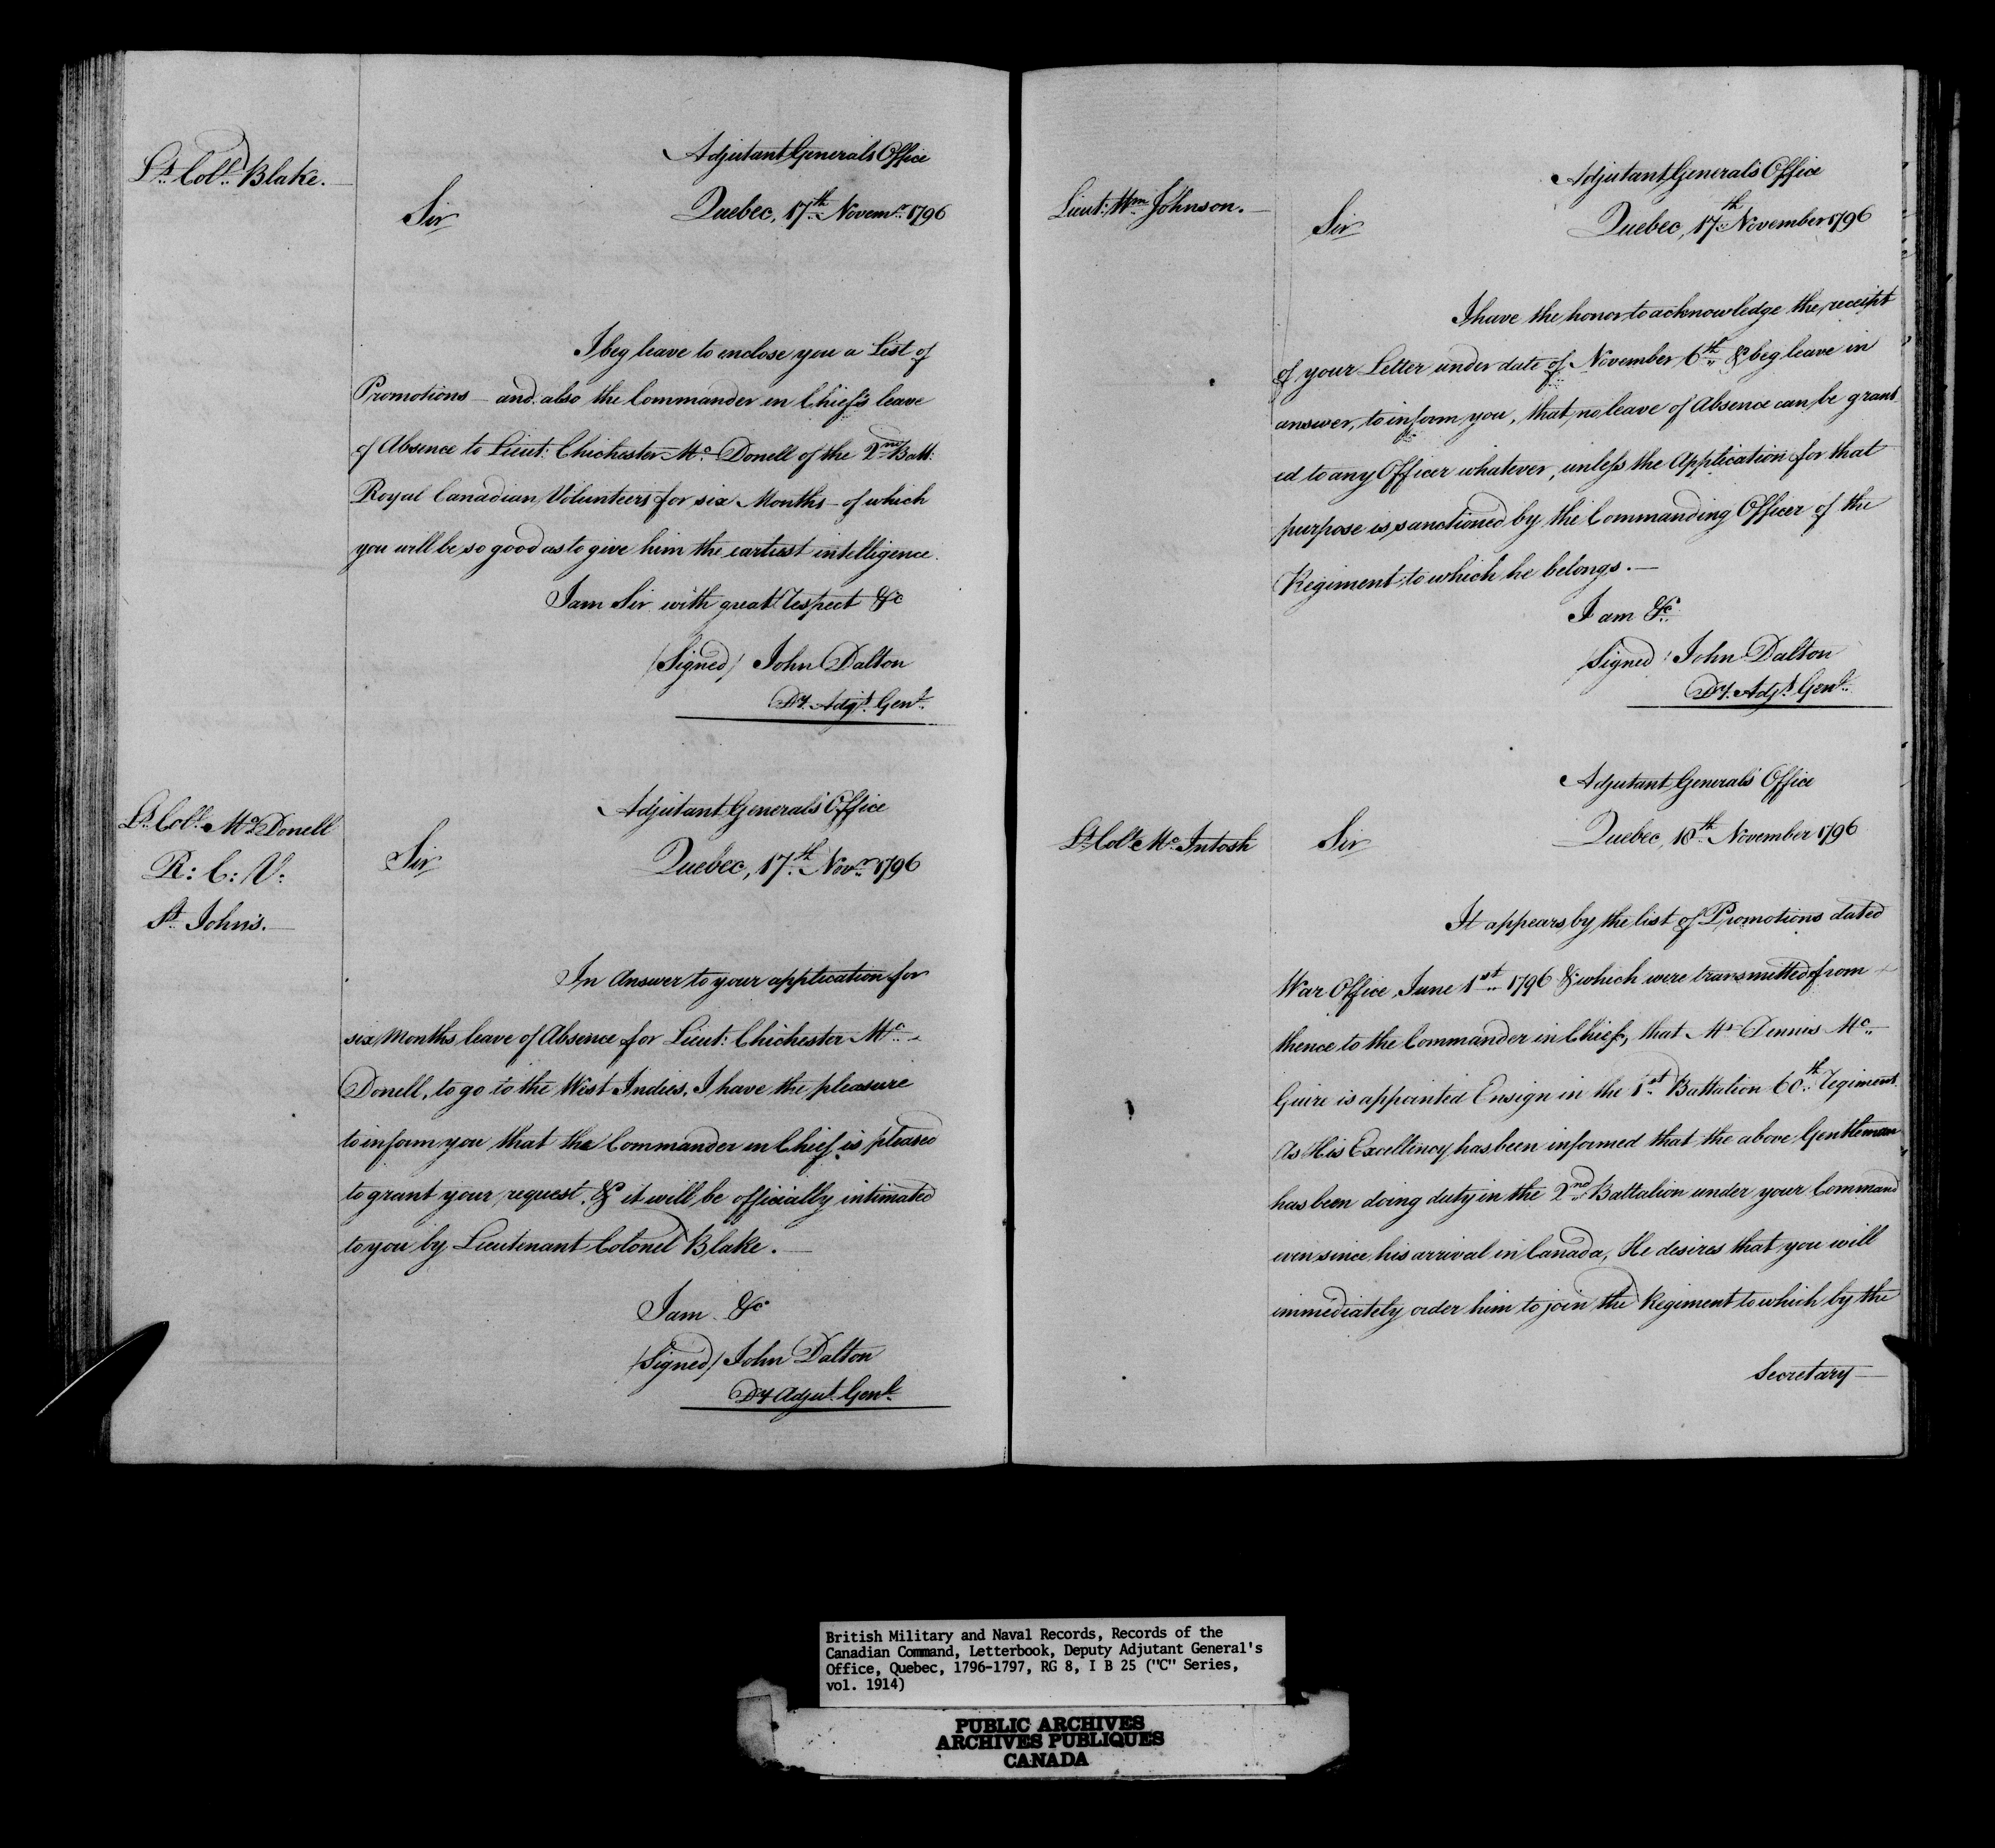 Lt. Coll. Blake.
Adjutant Generals Office
Sir
Quebec, 17th Novemr. 1796
I beg leave to enclose you a List of
Promotions - and also the Commander in Chief's leave
of Absence to Lieut: Chichester Mc. Donell of the 2nd Batt:
Royal Canadian Volunteers for six Months - of which
you will be so good as to give him the earliest intelligence.
I am Sir with great respect &c
/Signed/ John Dalton
Dy. Adjt. Genl.
Lt. Coll. Mc. Donell
R: C: V:
St. John's.
Adjutant Generals Office
Sir
Quebec, 17th. Novr. 1796
In Answer to your application for
six Months leave of Absence for Lieut: Chichester Mc.
Donell, to go to the West Indies, I have the pleasure
to inform you that the Commander in Chief is pleased
to grant your request, & it will be officially intimated
to you by Lieutenant Colonel Blake.
I am &c
/Signed/ John Dalton
Dy Adjut. Genl.
Lieut: Wm. Johnson.
Adjutant Generals Office
Sir
Quebec, 17th. November 1796
I have the honor to acknowledge the receipt
of your Letter under date of November 6th. & beg leave in
answer, to inform you, that no leave of Absence can be grant
ed to any Officer whatever, unless the Application for that
purpose is sanctioned by the Commanding Officer of the
Regiment to which he belongs.
I am &c.
/Signed/ John Dalton
Dy. Adjt. Genl.
Lt. Coll. Mc. Intosh
Adjutant Generals Office
Sir
Quebec, 18th. November 1796
It appears by the list of Promotions dated
War Office June 1st. 1796 & which were transmitted from
thence to the Commander in Chief, that Mr. Dennis Mc.
Guire is appointed Ensign in the 1st. Battalion 60th. regiment.
As His Excellency has been informed that the above Gentleman
has been doing duty in the 2nd. Battalion under your Command
ever since his arrival in Canada, He desires that you will
immediately order him to join the Regiment to which by the
Secretary
British Military and Naval Records, Records of the
Canadian Command, Letterbook, Deputy Adjutant General's
Office, Quebec, 1796-1797, RG 8, I B 25 ("C" Series,
vol. 1914)
PUBLIC ARCHIVES
ARCHIVES PUBLIQUES
CANADA